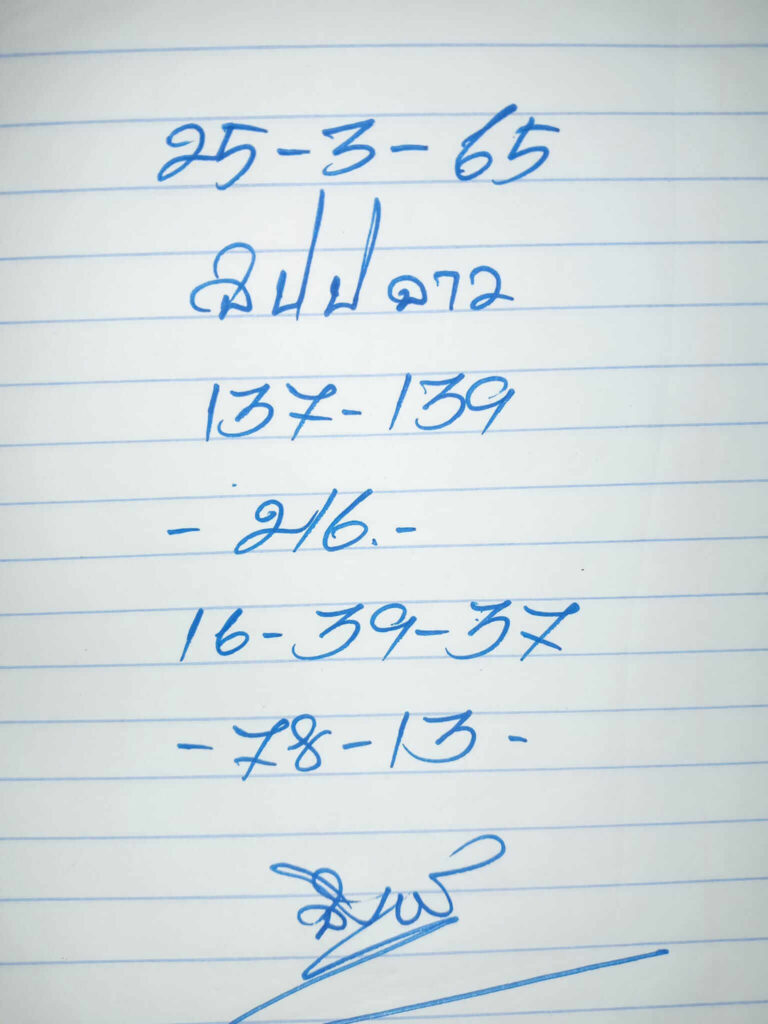 25-3-65
สปปลาว
137-139
- 216.-
16-39-37
-78-13-